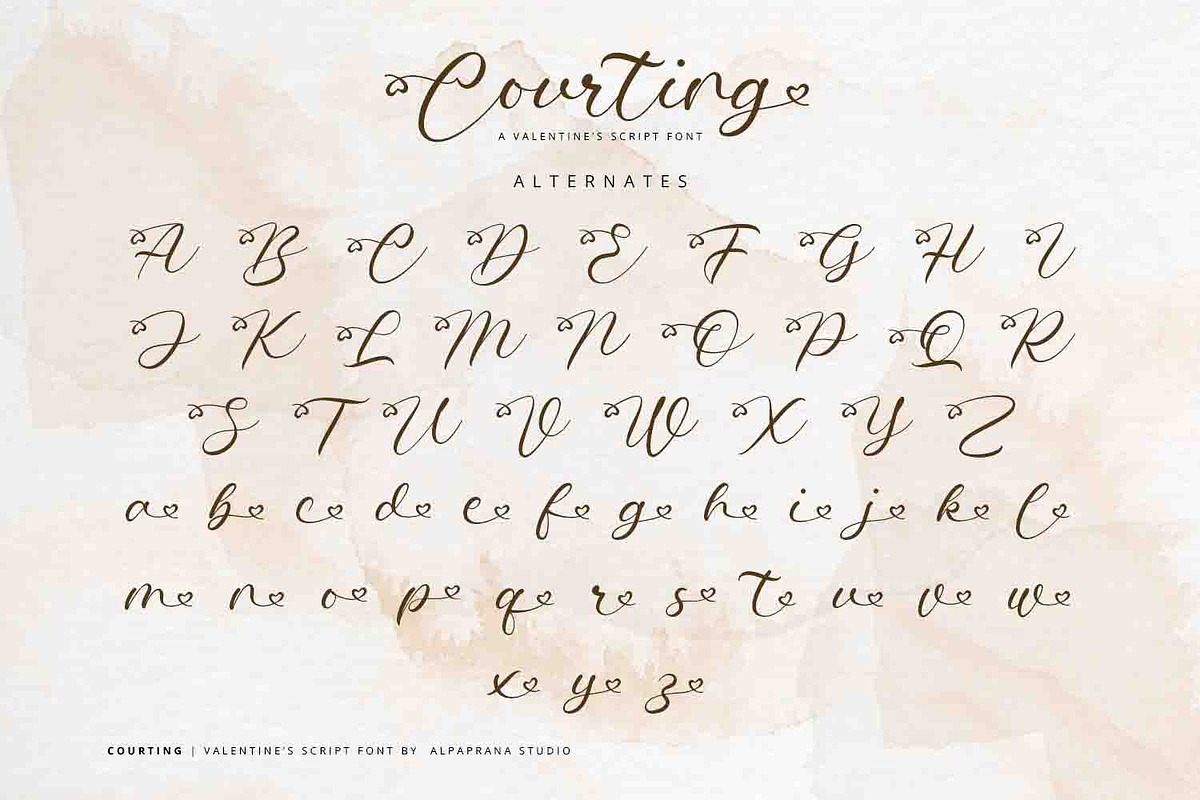 Courting
A VALENTINE'S SCRIPT FONT
ALTERNATES
A B C D E F G H I
J K L M N O P Q R
S T U V W X Y Z
a b c d e f g h i j k l
m n o p q r s t u v w
x y z
COURTING | VALENTINE'S SCRIPT FONT BY ALPAPRANA STUDIO